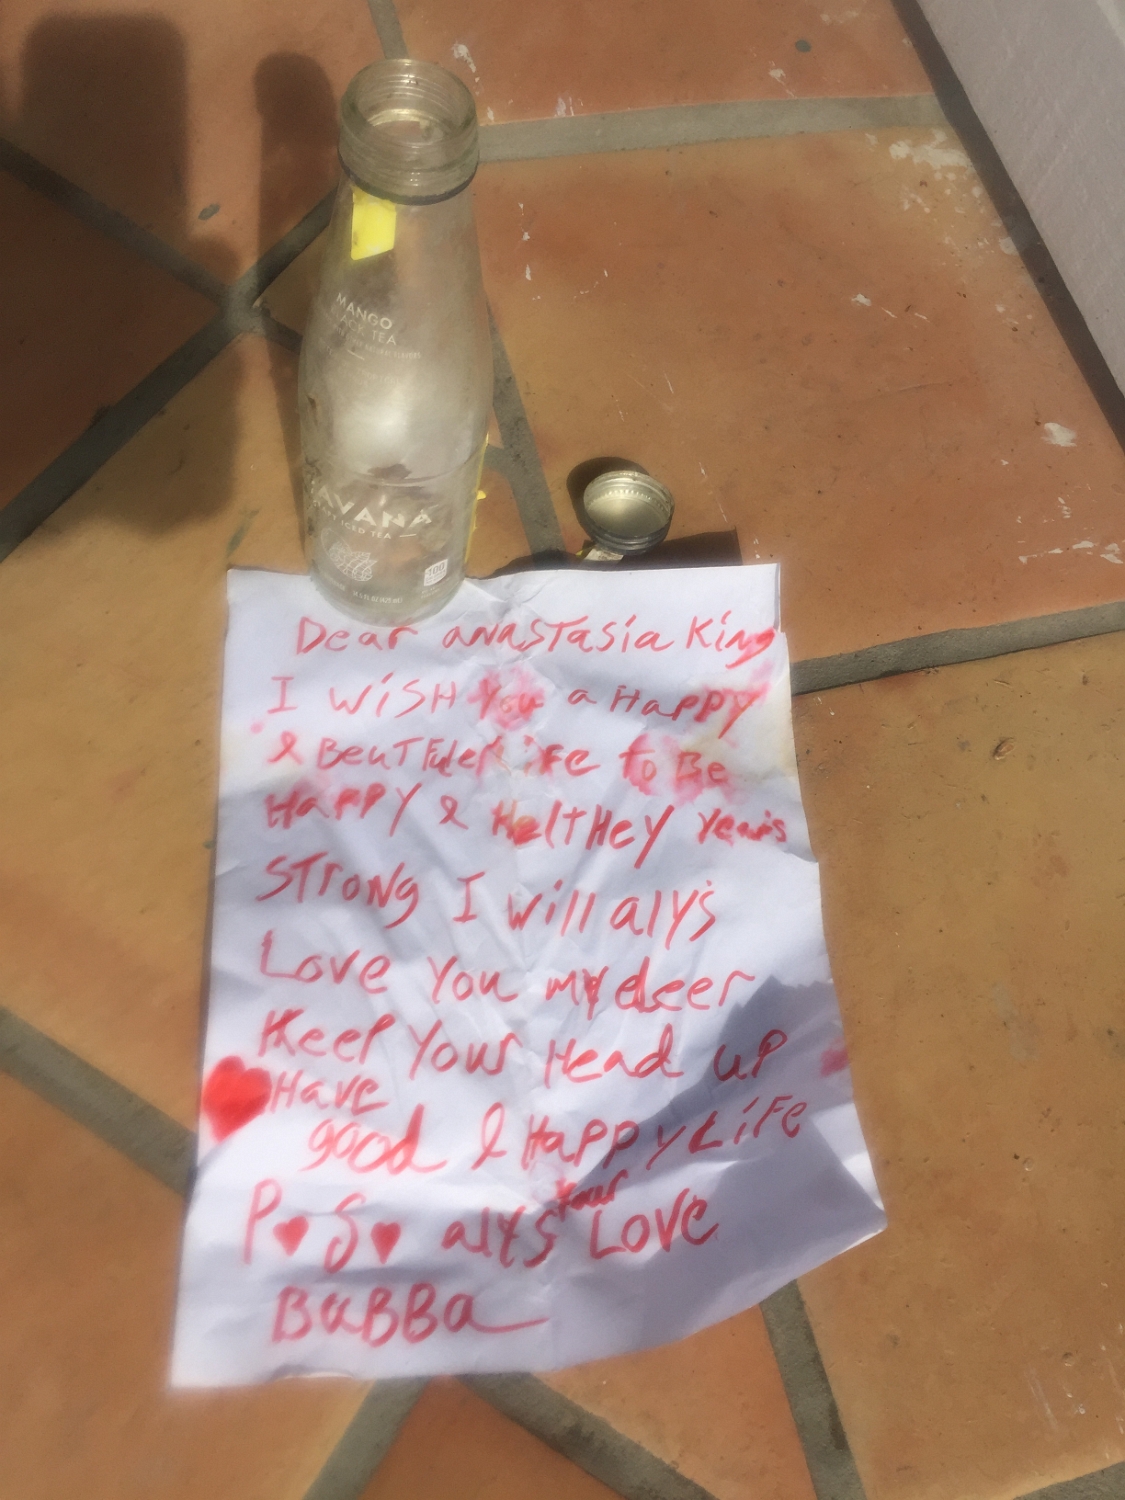 MANGO
BLACK TEA
TEAVANA
ICED TEA
Dear anasTasia King
I WiSH You a Happy
& BeuTFuler liFe to Be
Happy & HelTHey Years
STroNg I will aly's
Love You my deer
Keep Your Head up
Have
good & Happy LiFe
P♥S♥ alys Your Love
BaBBa